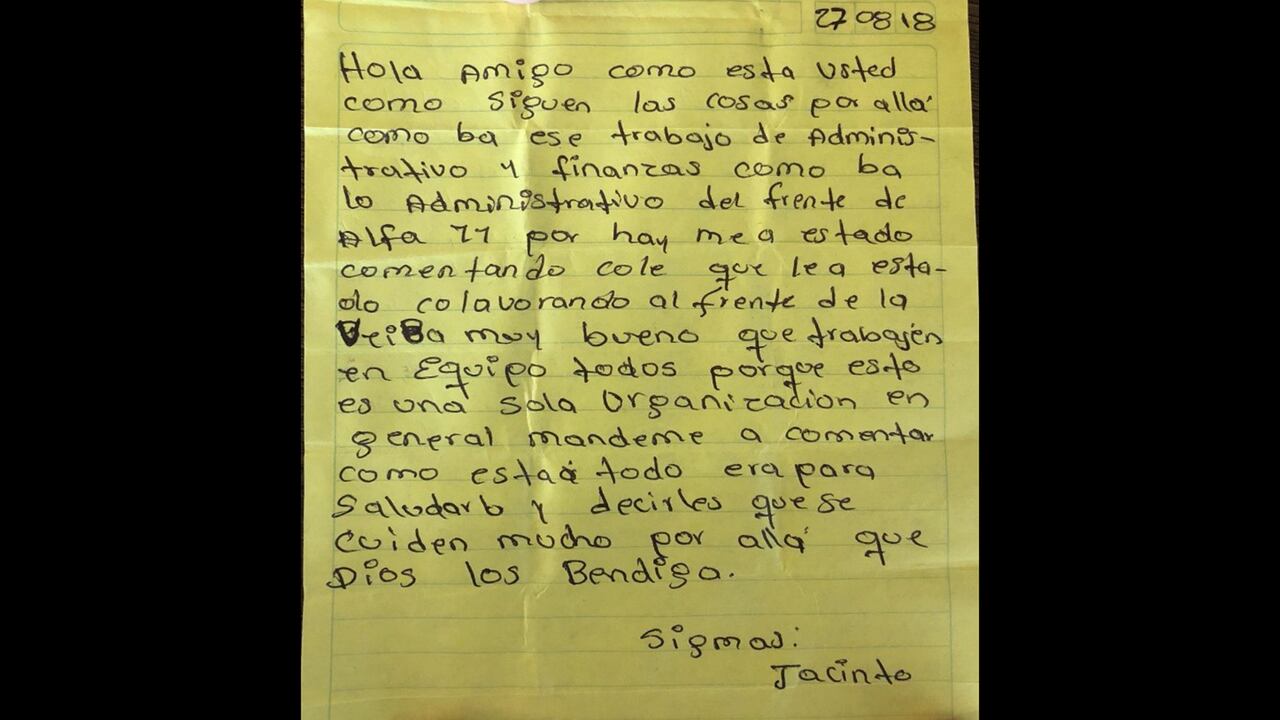 27 08 18
Hola Amigo como esta Usted
como siguen las cosas por allá
como ba ese trabajo de Adminis-
trativo y finanzas como ba
lo Administrativo del frente de
Alfa 11 por hay me a estado
comentando cole que le a esta-
do colavorando al frente de la
muy bueno que trabajen
en Equipo todos porque esto
es una sola Organizacion en
general mandeme a comentar
como está todo era para
Saludarlo y decirles que se
Cuiden mucho por allá que
Dios los Bendiga.
Sigmas:
Jacinto